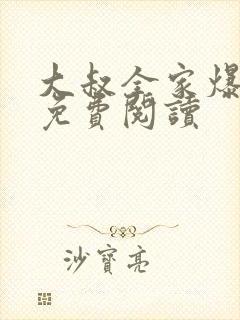 大叔全家爆
免費閱讀
沙寶亮